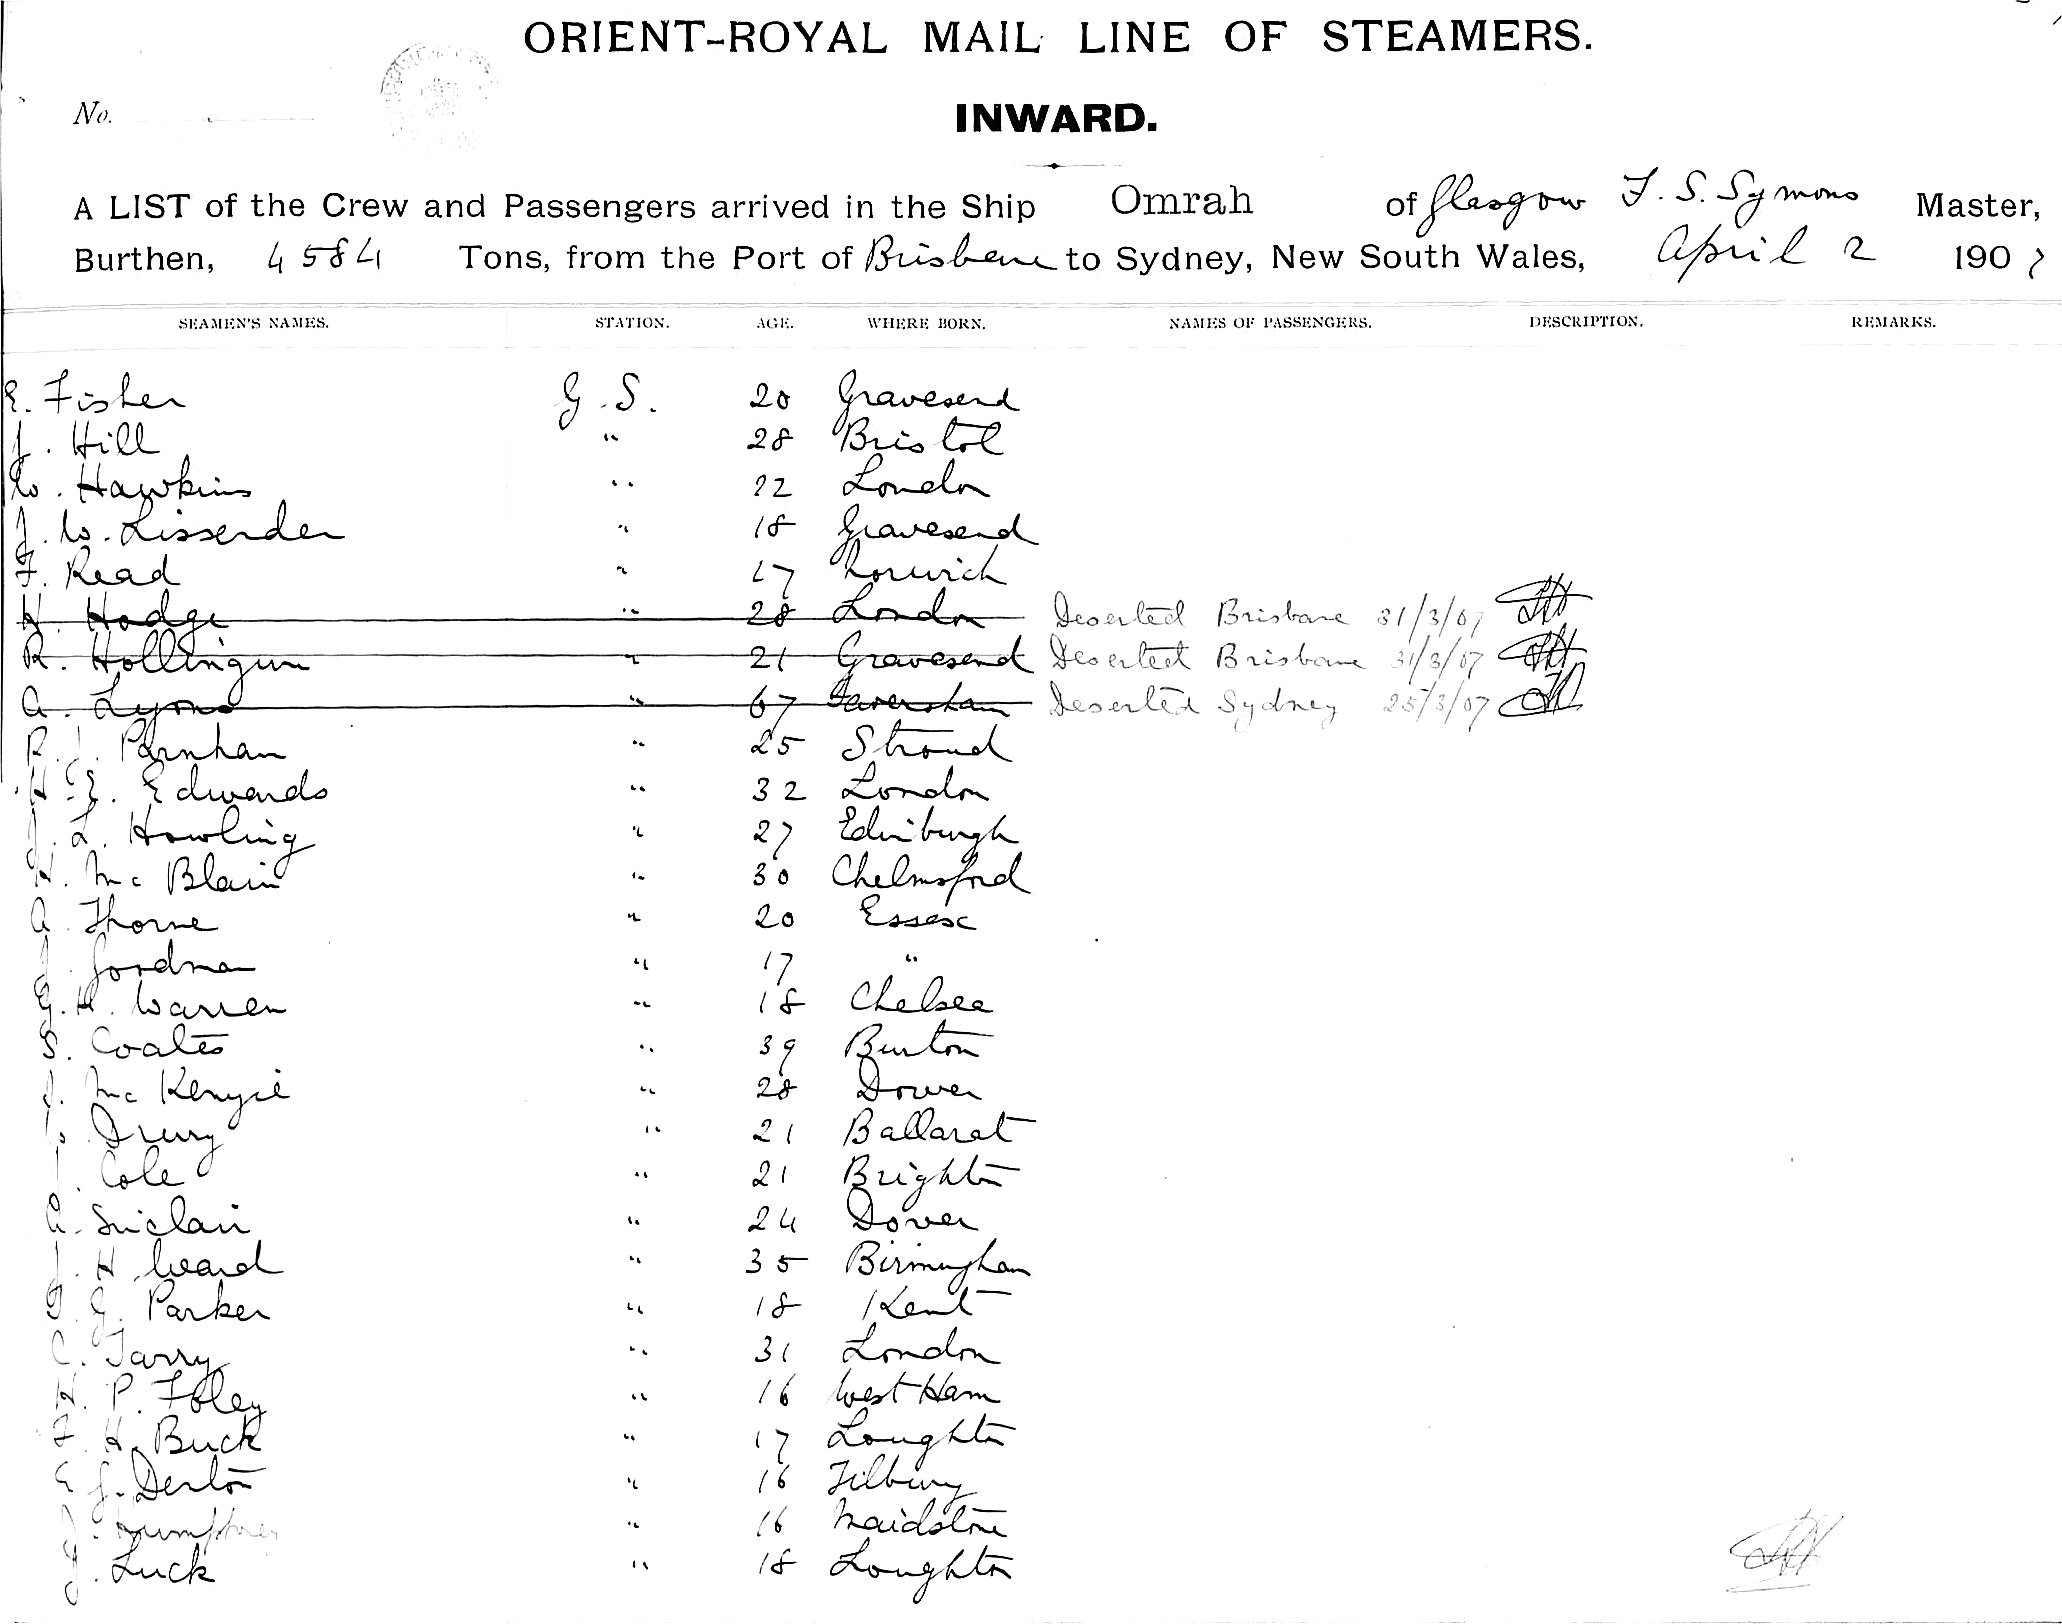 ORIENT-ROYAL MAIL LINE OF STEAMERS.
No.
INWARD.
A LIST of the Crew and Passengers arrived in the Ship Omrah of Glasgow F. S. Symons Master,
Burthen, 4584 Tons, from the Port of Brisbane to Sydney, New South Wales, April 2 1907
SEAMEN'S NAMES. STATION. AGE. WHERE BORN. NAMES OF PASSENGERS. DESCRIPTION. REMARKS.
E. Fisher G.S. 20 Gravesend
J. Hill " 28 Bristol
W. Hawkins " 22 London
J. W. Lissenden " 18 Gravesend
F. Read " 17 Norwich
H. Hodge " 28 London Deserted Brisbane 31/3/07
R. Hollingum " 21 Gravesend Deserted Brisbane 31/3/07
A. Lyons " 67 Faversham Deserted Sydney 25/3/07
R. J. Parnham " 25 Stroud
H. E. Edwards " 32 London
J. L. Howling " 27 Edinburgh
H. McBlain " 30 Chelmsford
A. Thorne " 20 Essex
J. Jordman " 17 "
G. H. Warren " 18 Chelsea
S. Coates " 39 Burton
J. McKenzie " 28 Dover
Drury " 21 Ballarat
J. Cole " 21 Brighton
A. Sinclair " 24 Dover
J. H. Weard " 35 Birmingham
G. Parker " 18 Kent
C. Tarry " 31 London
H. P. Foley " 16 West Ham
F. H. Buck " 17 Loughton
E. J. Denton " 16 Tilbury
J. Humphrey " 16 Maidstone
J. Luck " 18 Loughton